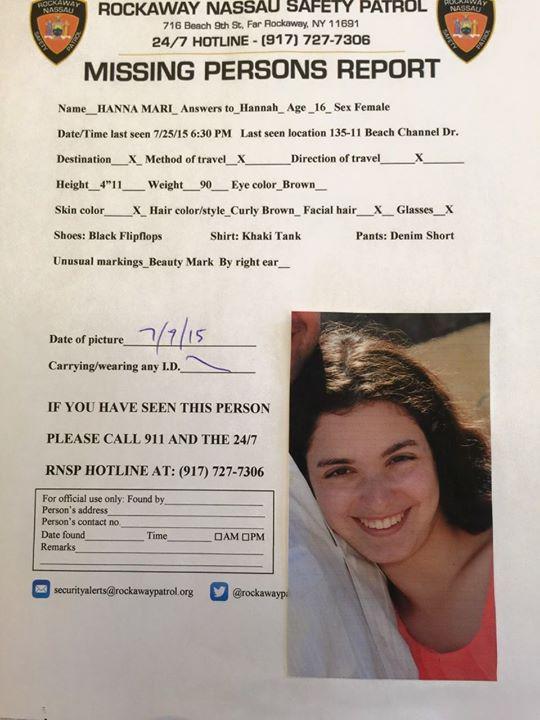 ROCKAWAY NASSAU SAFETY PATROL
716 Beach 9th St, Far Rockaway, NY 11691
24/7 HOTLINE - (917) 727-7306
ROCKAWAY NASSAU
SAFETY PATROL
ROCKAWAY NASSAU
SAFETY PATROL
MISSING PERSONS REPORT
Name__HANNA MARI_ Answers to_Hannah_ Age _16_ Sex Female
Date/Time last seen 7/25/15 6:30 PM Last seen location 135-11 Beach Channel Dr.
Destination___X_ Method of travel__X_______Direction of travel______X_______
Height__4"11____ Weight___90___ Eye color_Brown__
Skin color_____X_ Hair color/style_Curly Brown_ Facial hair___X__ Glasses__X
Shoes: Black Flipflops Shirt: Khaki Tank Pants: Denim Short
Unusual markings_Beauty Mark By right ear__
Date of picture 7/9/15
Carrying/wearing any I.D.
IF YOU HAVE SEEN THIS PERSON
PLEASE CALL 911 AND THE 24/7
RNSP HOTLINE AT: (917) 727-7306
For official use only: Found by
Person's address
Person's contact no.
Date found__________ Time_______ □AM □PM
Remarks
securityalerts@rockawaypatrol.org @rockawayp